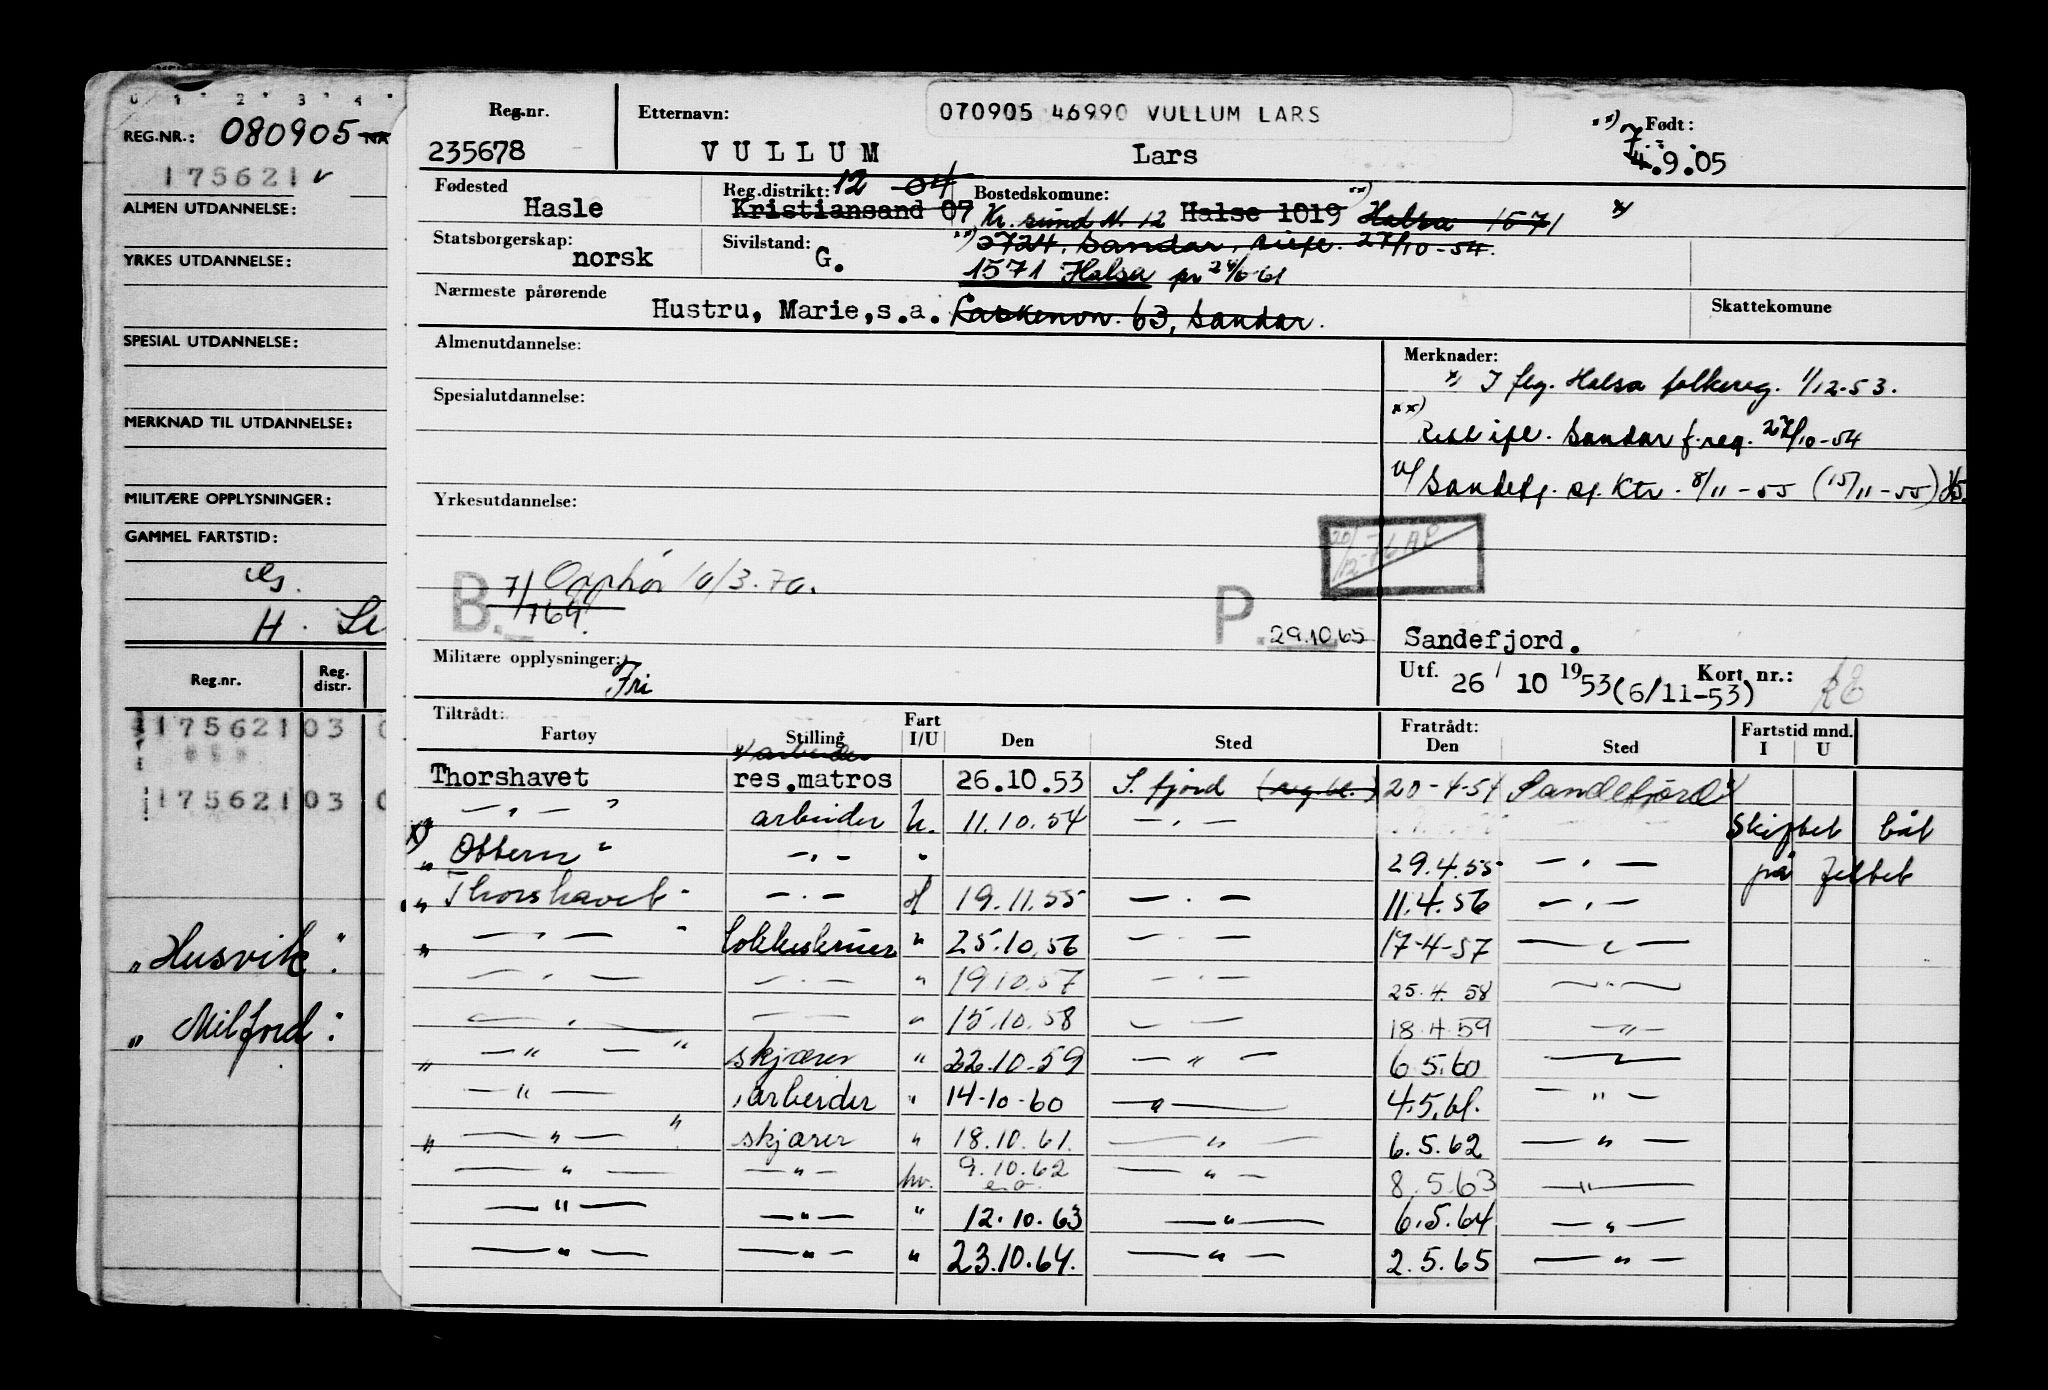 0 1 2 3 4
REG.NR.: 080905
175621
ALMEN UTDANNELSE:
YRKES UTDANNELSE:
SPESIAL UTDANNELSE:
MERKNAD TIL UTDANNELSE:
MILITÆRE OPPLYSNINGER:
GAMMEL FARTSTID:
H.
Reg.nr. Reg. distr.
175621 03
175621 03
"Husvik"
"Milford"
Reg.nr. Etternavn: 070905 46990 VULLUM LARS Født:
235678 VULLUM Lars 7 4.9.05
Fødested Reg.distrikt: 12 04 Bostedskomune:
Hasle Kristiansand 07 Kr. sund N. 12 Halse 1019 Halsa 1571 x)
Statsborgerskap: Sivilstand: xx) 2724. Sandar. 27/10-54.
norsk G.
1571 Halsa
Nærmeste pårørende Skattekomune
Hustru, Marie, s.a. 63, Sandar.
Almenutdannelse: Merknader:
x) I flg. Halsa folkereg. 1/12-53.
Spesialutdannelse:
xx) Sandar f.reg. 27/10-54
Yrkesutdannelse: Sandefj. sj. Ktr. 8/11-55 (15/11-55)
B. 7/769. Opphør 10/3.70.
P. 29.10.65
Sandefjord.
Militære opplysninger: Fri
Utf. 26/10 1953 (6/11-53) Kort nr.:
Tiltrådt: Fart Fratrådt: Fartstid mnd.
Fartøy Stilling I/U Den Sted Den Sted I U
x) arbeider
Thorshavet res.matros 26.10.53 S.fjord 20-4-54 Sandefjord
— " — arbeider h. 11.10.54 — " — Skiftet båt
x) "Obbern" — " — " 29.4.55 — " — på feltet
"Thorshavet" — " — H 19.11.55 — " — 11.4.56 — " —
" — " — " kokkeskruer " 25.10.56 — " — 17-4-57 — " —
— " — — " — " 19.10.57 — " — 25.4.58 — " —
— " — — " — " 15.10.58 — " — 18.4.59 — " —
" — " — " skjærer " 22.10.59 — " — 6.5.60 — " —
— " — arbeider " 14-10-60 — " — 4.5.61. — " —
" — " — " skjærer " 18.10.61. — " — 6.5.62 — " —
— " — — " — hv. 9.10.62 — " — 8.5.63 — " —
— " — — " — " 12.10.63 — " — 6.5.64 — " —
— " — — " — " 23.10.64. — " — 2.5.65 — " —